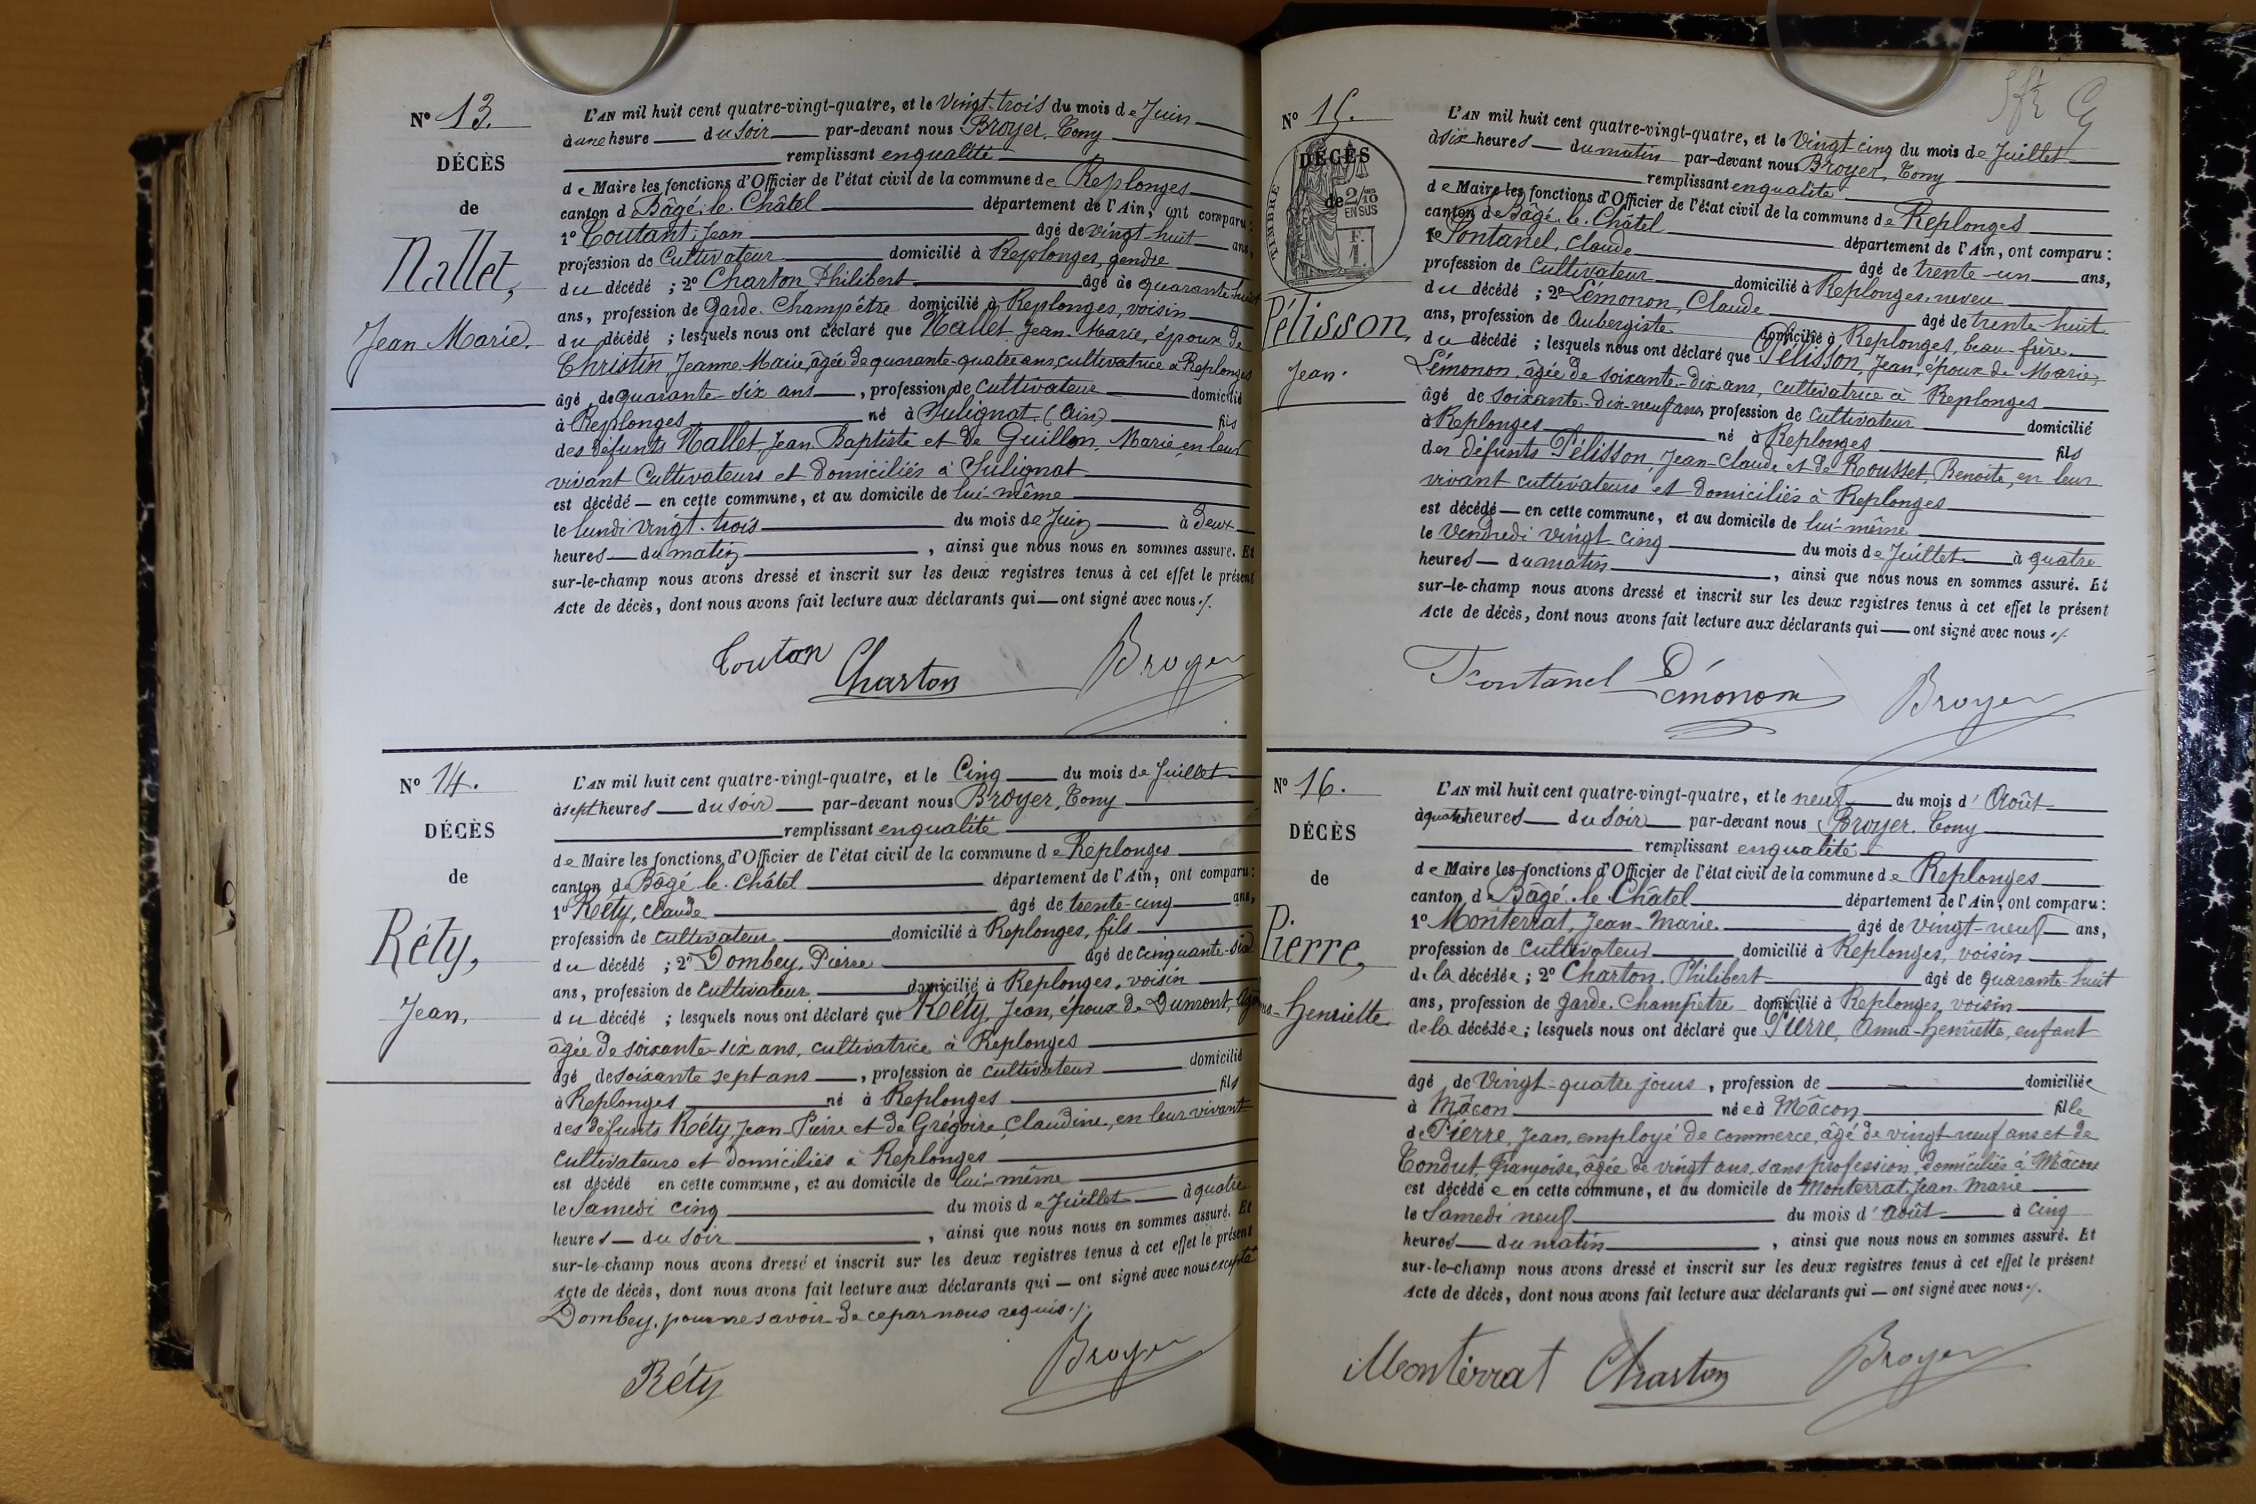 N° 13.
DÉCÈS
de
Nallet,
Jean Marie.
L'AN mil huit cent quatre-vingt-quatre, et le Vingt-trois du mois de Juin
à une heure du Soir par-devant nous Broyer, Tony
remplissant en qualité
de Maire les fonctions d'Officier de l'état civil de la commune de Replonges
canton de Bâgé-le-Châtel département de l'Ain, ont comparu:
1° Coutant, Jean âgé de vingt-huit ans,
profession de Cultivateur domicilié à Replonges, gendre
du décédé ; 2° Charton Philibert âgé de quarante-huit
ans, profession de Garde-Champêtre domicilié à Replonges, voisin
du décédé ; lesquels nous ont déclaré que Nallet, Jean-Marie, époux de
Christin, Jeanne-Marie, âgée de quarante-quatre ans, cultivatrice à Replonges
âgé de quarante-six ans, profession de cultivateur domicilié
à Replonges né à Sulignat (Ain) fils
des défunts Nallet, Jean Baptiste et de Guillon, Marie, en leur
vivant Cultivateurs et domiciliés à Sulignat
est décédé en cette commune, et au domicile de lui-même
le lundi vingt-trois du mois de Juin à deux
heures du matin, ainsi que nous nous en sommes assuré. Et
sur-le-champ nous avons dressé et inscrit sur les deux registres tenus à cet effet le présent
Acte de décès, dont nous avons fait lecture aux déclarants qui ont signé avec nous ./.
Coutan Charton Broyer
N° 14.
DÉCÈS
de
Réty,
Jean,
L'AN mil huit cent quatre-vingt-quatre, et le Cinq du mois de Juillet
à sept heures du soir par-devant nous Broyer, Tony
remplissant en qualité
de Maire les fonctions d'Officier de l'état civil de la commune de Replonges
canton de Bâgé-le-Châtel département de l'Ain, ont comparu:
1° Réty, Claude âgé de trente-cinq ans,
profession de cultivateur domicilié à Replonges, fils
du décédé ; 2° Dombey, Pierre âgé de cinquante-six
ans, profession de cultivateur domicilié à Replonges, voisin
du décédé ; lesquels nous ont déclaré que Réty, Jean, époux de Dumont,
âgée de soixante-six ans, cultivatrice à Replonges
âgé de soixante sept ans, profession de cultivateur domicilié
à Replonges né à Replonges fils
des défunts Réty, Jean-Pierre et de Grégoire, Claudine, en leur vivant
cultivateurs et domiciliés à Replonges
est décédé en cette commune, et au domicile de lui-même
le Samedi cinq du mois de Juillet à quatre
heures du soir, ainsi que nous nous en sommes assuré. Et
sur-le-champ nous avons dressé et inscrit sur les deux registres tenus à cet effet le présent
Acte de décès, dont nous avons fait lecture aux déclarants qui ont signé avec nous excepté
Dombey, pour ne savoir de ce par nous requis ./.
Réty Broyer
N° 15.
DÉCÈS
de
TIMBRE
2/10
EN SUS
Pélisson,
Jean.
L'AN mil huit cent quatre-vingt-quatre, et le Vingt cinq du mois de Juillet
à six heures du matin par-devant nous Broyer, Tony
remplissant en qualité
de Maire les fonctions d'Officier de l'état civil de la commune de Replonges
canton de Bâgé-le-Châtel département de l'Ain, ont comparu:
1° Fontanel, Claude âgé de trente-un ans,
profession de Cultivateur domicilié à Replonges, neveu
du décédé ; 2° Lémonon, Claude âgé de trente-huit
ans, profession de Aubergiste domicilié à Replonges, beau-frère
du décédé ; lesquels nous ont déclaré que Pélisson, Jean, époux de Marie
Lémonon, âgée de soixante-dix ans, cultivatrice à Replonges
âgé de soixante-dix-neuf ans, profession de Cultivateur domicilié
à Replonges né à Replonges fils
des défunts Pélisson, Jean-Claude et de Rousset, Benoite, en leur
vivant cultivateurs et domiciliés à Replonges
est décédé en cette commune, et au domicile de lui-même
le Vendredi vingt-cinq du mois de Juillet à quatre
heures du matin, ainsi que nous nous en sommes assuré. Et
sur-le-champ nous avons dressé et inscrit sur les deux registres tenus à cet effet le présent
Acte de décès, dont nous avons fait lecture aux déclarants qui ont signé avec nous ./.
Fontanel Lémonon Broyer
N° 16.
DÉCÈS
de
Pierre,
Henriette
L'AN mil huit cent quatre-vingt-quatre, et le neuf du mois d'Août
à quatre heures du Soir par-devant nous Broyer, Tony
remplissant en qualité
de Maire les fonctions d'Officier de l'état civil de la commune de Replonges
canton de Bâgé-le-Châtel département de l'Ain, ont comparu:
1° Monterrat, Jean-Marie âgé de vingt-neuf ans,
profession de Cultivateur domicilié à Replonges, voisin
de la décédée ; 2° Charton, Philibert âgé de quarante-huit
ans, profession de garde-Champêtre domicilié à Replonges, voisin
de la décédée ; lesquels nous ont déclaré que Pierre, Anna-Henriette, enfant
âgé de Vingt-quatre jours, profession de domiciliée
à Mâcon née à Mâcon fille
de Pierre, Jean, employé de commerce, âgé de vingt-neuf ans et de
Condut, Françoise, âgée de vingt ans, sans profession, domiciliés à Mâcon
est décédée en cette commune, et au domicile de Monterrat, Jean-Marie
le Samedi neuf du mois d'Août à cinq
heures du matin, ainsi que nous nous en sommes assuré. Et
sur-le-champ nous avons dressé et inscrit sur les deux registres tenus à cet effet le présent
Acte de décès, dont nous avons fait lecture aux déclarants qui ont signé avec nous ./.
Monterrat Charton Broyer